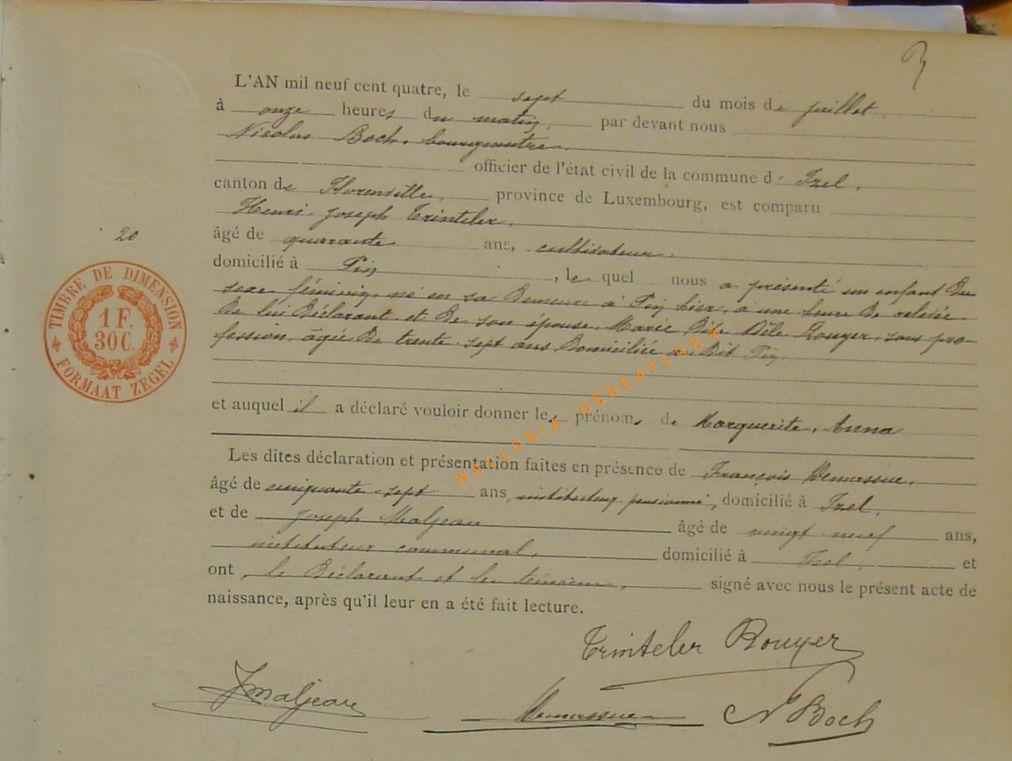 L'AN mil neuf cent quatre, le sept du mois de juillet,
à onze heures du matin, par devant nous
Nicolas Boch, bourgmestre,
officier de l'état civil de la commune d' Izel,
canton de Florenville, province de Luxembourg, est comparu
Henri Joseph Trinteler,
âgé de quarante ans, cultivateur,
domicilié à Pin, lequel nous a présenté un enfant du
sexe féminin, né en sa demeure à Pin, hier, à une heure de relevée,
de lui déclarant et de son épouse, Marie Odile Rouyer, sans pro-
fession, âgée de trente-sept ans domiciliée au dit Pin
et auquel il a déclaré vouloir donner les prénoms de Marguerite, Anna
Les dites déclaration et présentation faites en présence de François
âgé de cinquante-sept ans, instituteur pensionné, domicilié à Izel,
et de Joseph Maljean âgé de vingt-neuf ans,
instituteur communal, domicilié à Izel, et
ont, le déclarant et les témoins, signé avec nous le présent acte de
naissance, après qu'il leur en a été fait lecture.
Trinteler Rouyer
JMaljean
N Boch
20
TIMBRE DE DIMENSION
1 F.
30 C.
FORMAAT ZEGEL
WALLONIA-GENEAFLORE